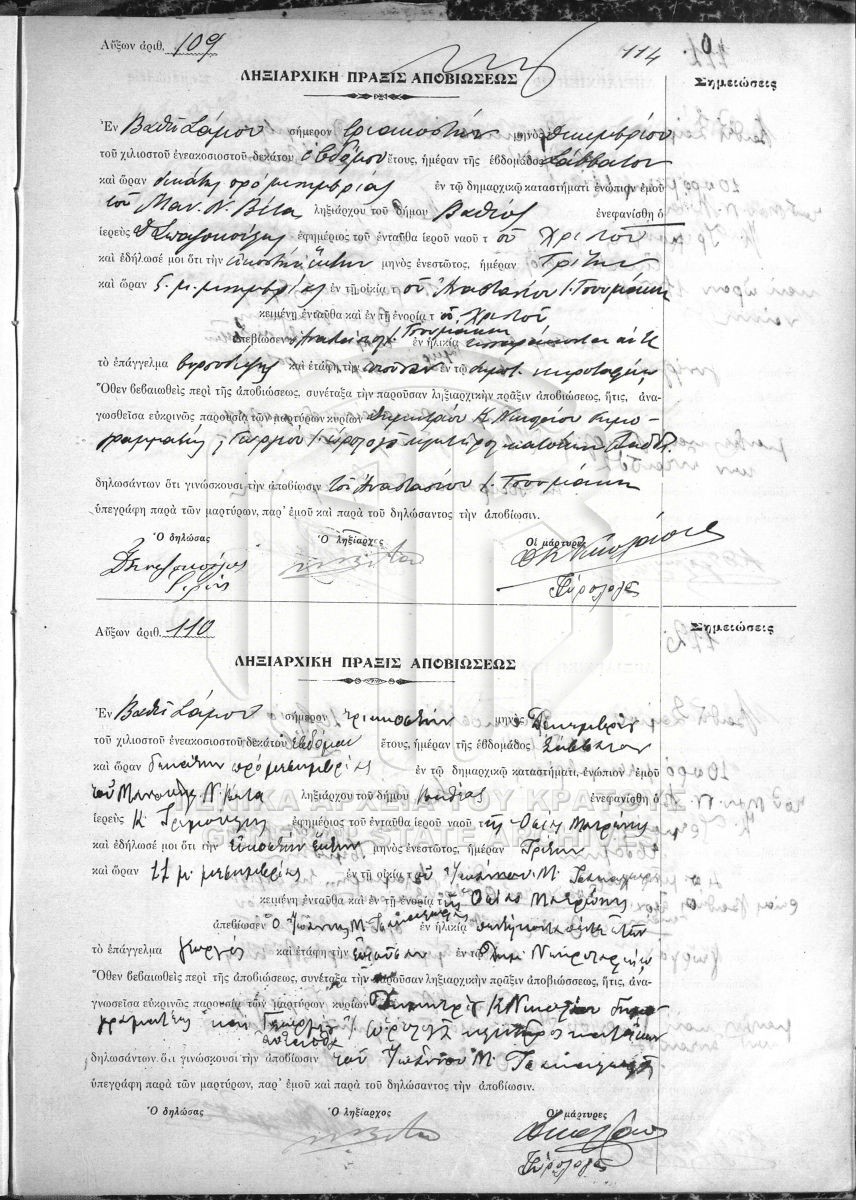 Αὔξων ἀριθ. 109
114
ΛΗΞΙΑΡΧΙΚΗ ΠΡΑΞΙΣ ΑΠΟΒΙΩΣΕΩΣ
Σημειώσεις
Ἐν Βαθεῖ Σάμου σήμερον τριακοστήν μηνὸς Δεκεμβρίου
τοῦ χιλιοστοῦ ἐνεακοσιοστοῦ δεκάτου ἑβδόμου ἔτους, ἡμέραν τῆς ἑβδομάδος Σάββατον
καὶ ὥραν δεκάτην πρὸ μεσημβρίας ἐν τῷ δημαρχικῷ καταστήματι ἐνώπιον ἐμοῦ
τοῦ Μαν. Ν. Βέτα ληξιάρχου τοῦ δήμου Βαθέος ἐνεφανίσθη ὁ
ἱερεὺς ἐφημέριος τοῦ ἐνταῦθα ἱεροῦ ναοῦ τοῦ Χριστοῦ
καὶ ἐδήλωσέ μοι ὅτι τὴν εἰκοστὴν ἕκτην μηνὸς ἐνεστῶτος, ἡμέραν Τρίτην
καὶ ὥραν 5 μ. μεσημβρίας ἐν τῇ οἰκίᾳ τοῦ Ἀναστασίου Ι. Τσουμάκη
κειμένῃ ἐνταῦθα καὶ ἐν τῇ ἐνορίᾳ τοῦ Χριστοῦ
ἀπεβίωσεν ὁ Ἀναστάσιος Ι. Τσουμάκης ἐν ἡλικίᾳ
τὸ ἐπάγγελμα βυρσοδέψης καὶ ἐτάφη τὴν ἐν τῷ δημοτ. νεκροταφείῳ
Ὅθεν βεβαιωθεὶς περὶ τῆς ἀποβιώσεως, συνέταξα τὴν παροῦσαν ληξιαρχικὴν πρᾶξιν ἀποβιώσεως, ἥτις, ἀνα-
γνωσθεῖσα εὐκρινῶς παρουσίᾳ τῶν μαρτύρων κυρίων Δημητρίου Κ. Νικολαΐου δημο-
γραμματέως, Γεωργίου Ι. κατοίκων
δηλωσάντων ὅτι γινώσκουσι τὴν ἀποβίωσιν τοῦ Ἀναστασίου Ι. Τσουμάκη
ὑπεγράφη παρὰ τῶν μαρτύρων, παρ' ἐμοῦ καὶ παρὰ τοῦ δηλώσαντος τὴν ἀποβίωσιν.
Ὁ δηλώσας Ὁ ληξίαρχος Οἱ μάρτυρες
Αὔξων ἀριθ. 110
Σημειώσεις
ΛΗΞΙΑΡΧΙΚΗ ΠΡΑΞΙΣ ΑΠΟΒΙΩΣΕΩΣ
Ἐν Βαθεῖ Σάμου σήμερον τριακοστήν μηνὸς Δεκεμβρίου
τοῦ χιλιοστοῦ ἐνεακοσιοστοῦ δεκάτου ἑβδόμου ἔτους, ἡμέραν τῆς ἑβδομάδος Σάββατον
καὶ ὥραν δεκάτην πρὸ μεσημβρίας ἐν τῷ δημαρχικῷ καταστήματι, ἐνώπιον ἐμοῦ
τοῦ Μανουὴλ Ν. Βέτα ληξιάρχου τοῦ δήμου Βαθέος ἐνεφανίσθη ὁ
ΓΕΝΙΚΑ ΑΡΧΕΙΑ ΤΟΥ ΚΡΑΤΟΥΣ
ἱερεὺς Κ. ἐφημέριος τοῦ ἐνταῦθα ἱεροῦ ναοῦ τῆς Ὁσίας Ματρώνης
GENERAL STATE ARCHIVES
καὶ ἐδήλωσέ μοι ὅτι τὴν εἰκοστὴν ἕκτην μηνὸς ἐνεστῶτος, ἡμέραν Τρίτην
καὶ ὥραν 11 μ. μεσημβρίας ἐν τῇ οἰκίᾳ τοῦ Ἰωάννου Μ.
κειμένῃ ἐνταῦθα καὶ ἐν τῇ ἐνορίᾳ τῆς Ὁσίας Ματρώνης
ἀπεβίωσεν ὁ Ἰωάννης Μ. ἐν ἡλικίᾳ πεντήκοντα πέντε ἐτῶν
τὸ ἐπάγγελμα γεωργός καὶ ἐτάφη τὴν ἐν τῷ Δημ. Νεκροταφείῳ
Ὅθεν βεβαιωθεὶς περὶ τῆς ἀποβιώσεως, συνέταξα τὴν παροῦσαν ληξιαρχικὴν πρᾶξιν ἀποβιώσσεως, ἥτις, ἀνα-
γνωσθεῖσα εὐκρινῶς παρουσίᾳ τῶν μαρτύρων κυρίων Δημητρίου Κ. Νικολαΐου δημο
γραμματέως καὶ Γεωργίου Ι. κατοίκων
δηλωσάντων ὅτι γινώσκουσι τὴν ἀποβίωσιν τοῦ Ἰωάννου Μ.
ὑπεγράφη παρὰ τῶν μαρτύρων, παρ' ἐμοῦ καὶ παρὰ τοῦ δηλώσαντος τὴν ἀποβίωσιν.
Ὁ δηλώσας Ὁ ληξίαρχος Οἱ μάρτυρες